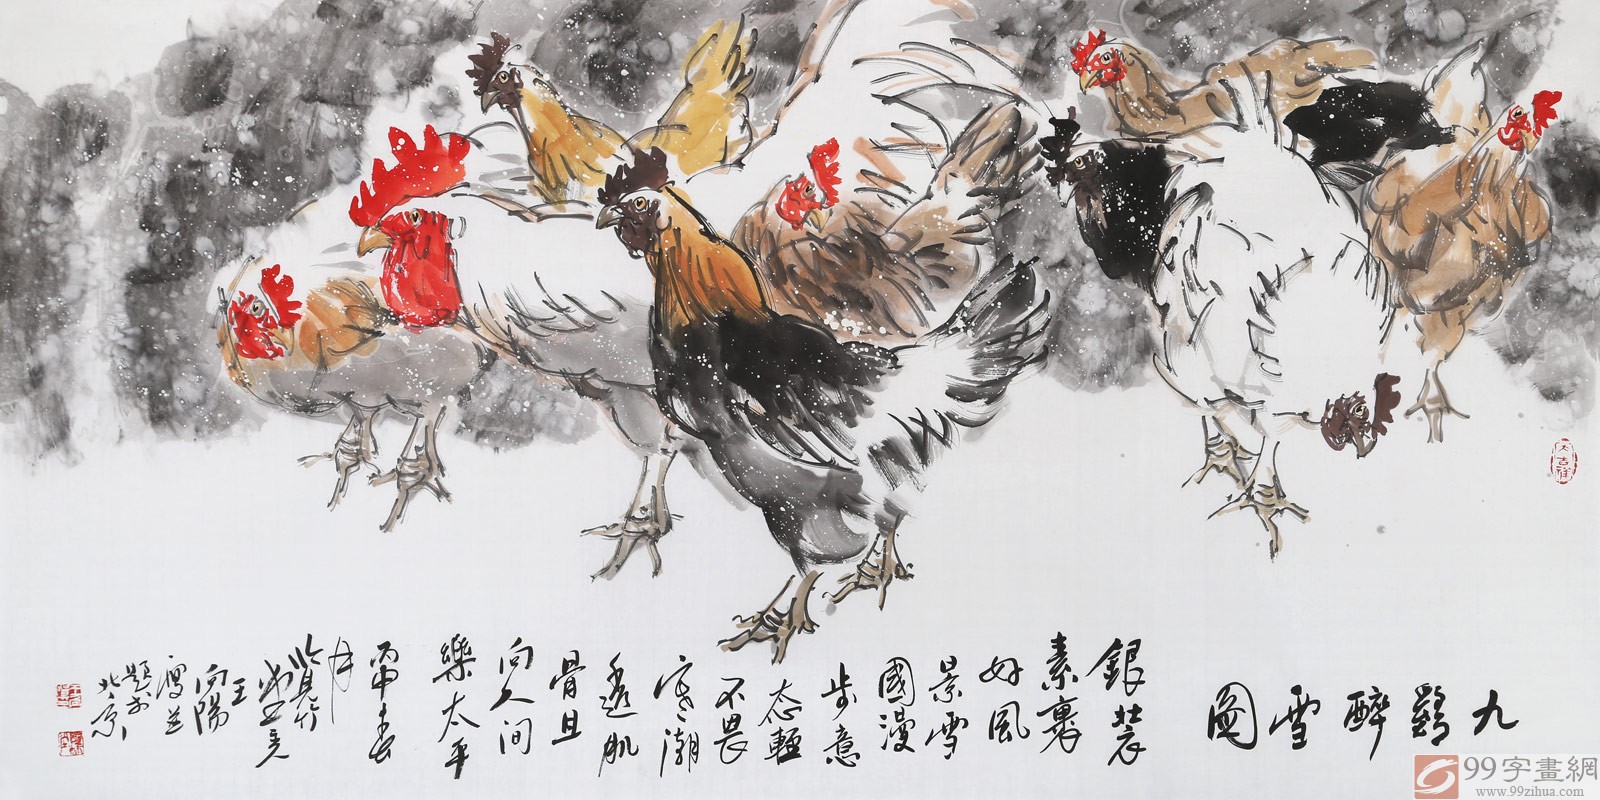 九
鷄
醉
雪
圖
銀裝
素裹
好風
景雪
國漫
步意
态輕
不畏
寒潮
透肌
骨且
向人间
樂太平
丙申春
月
王
向陽
寫並
題於
北京
大吉祥
99字畫網
www.99zihua.com